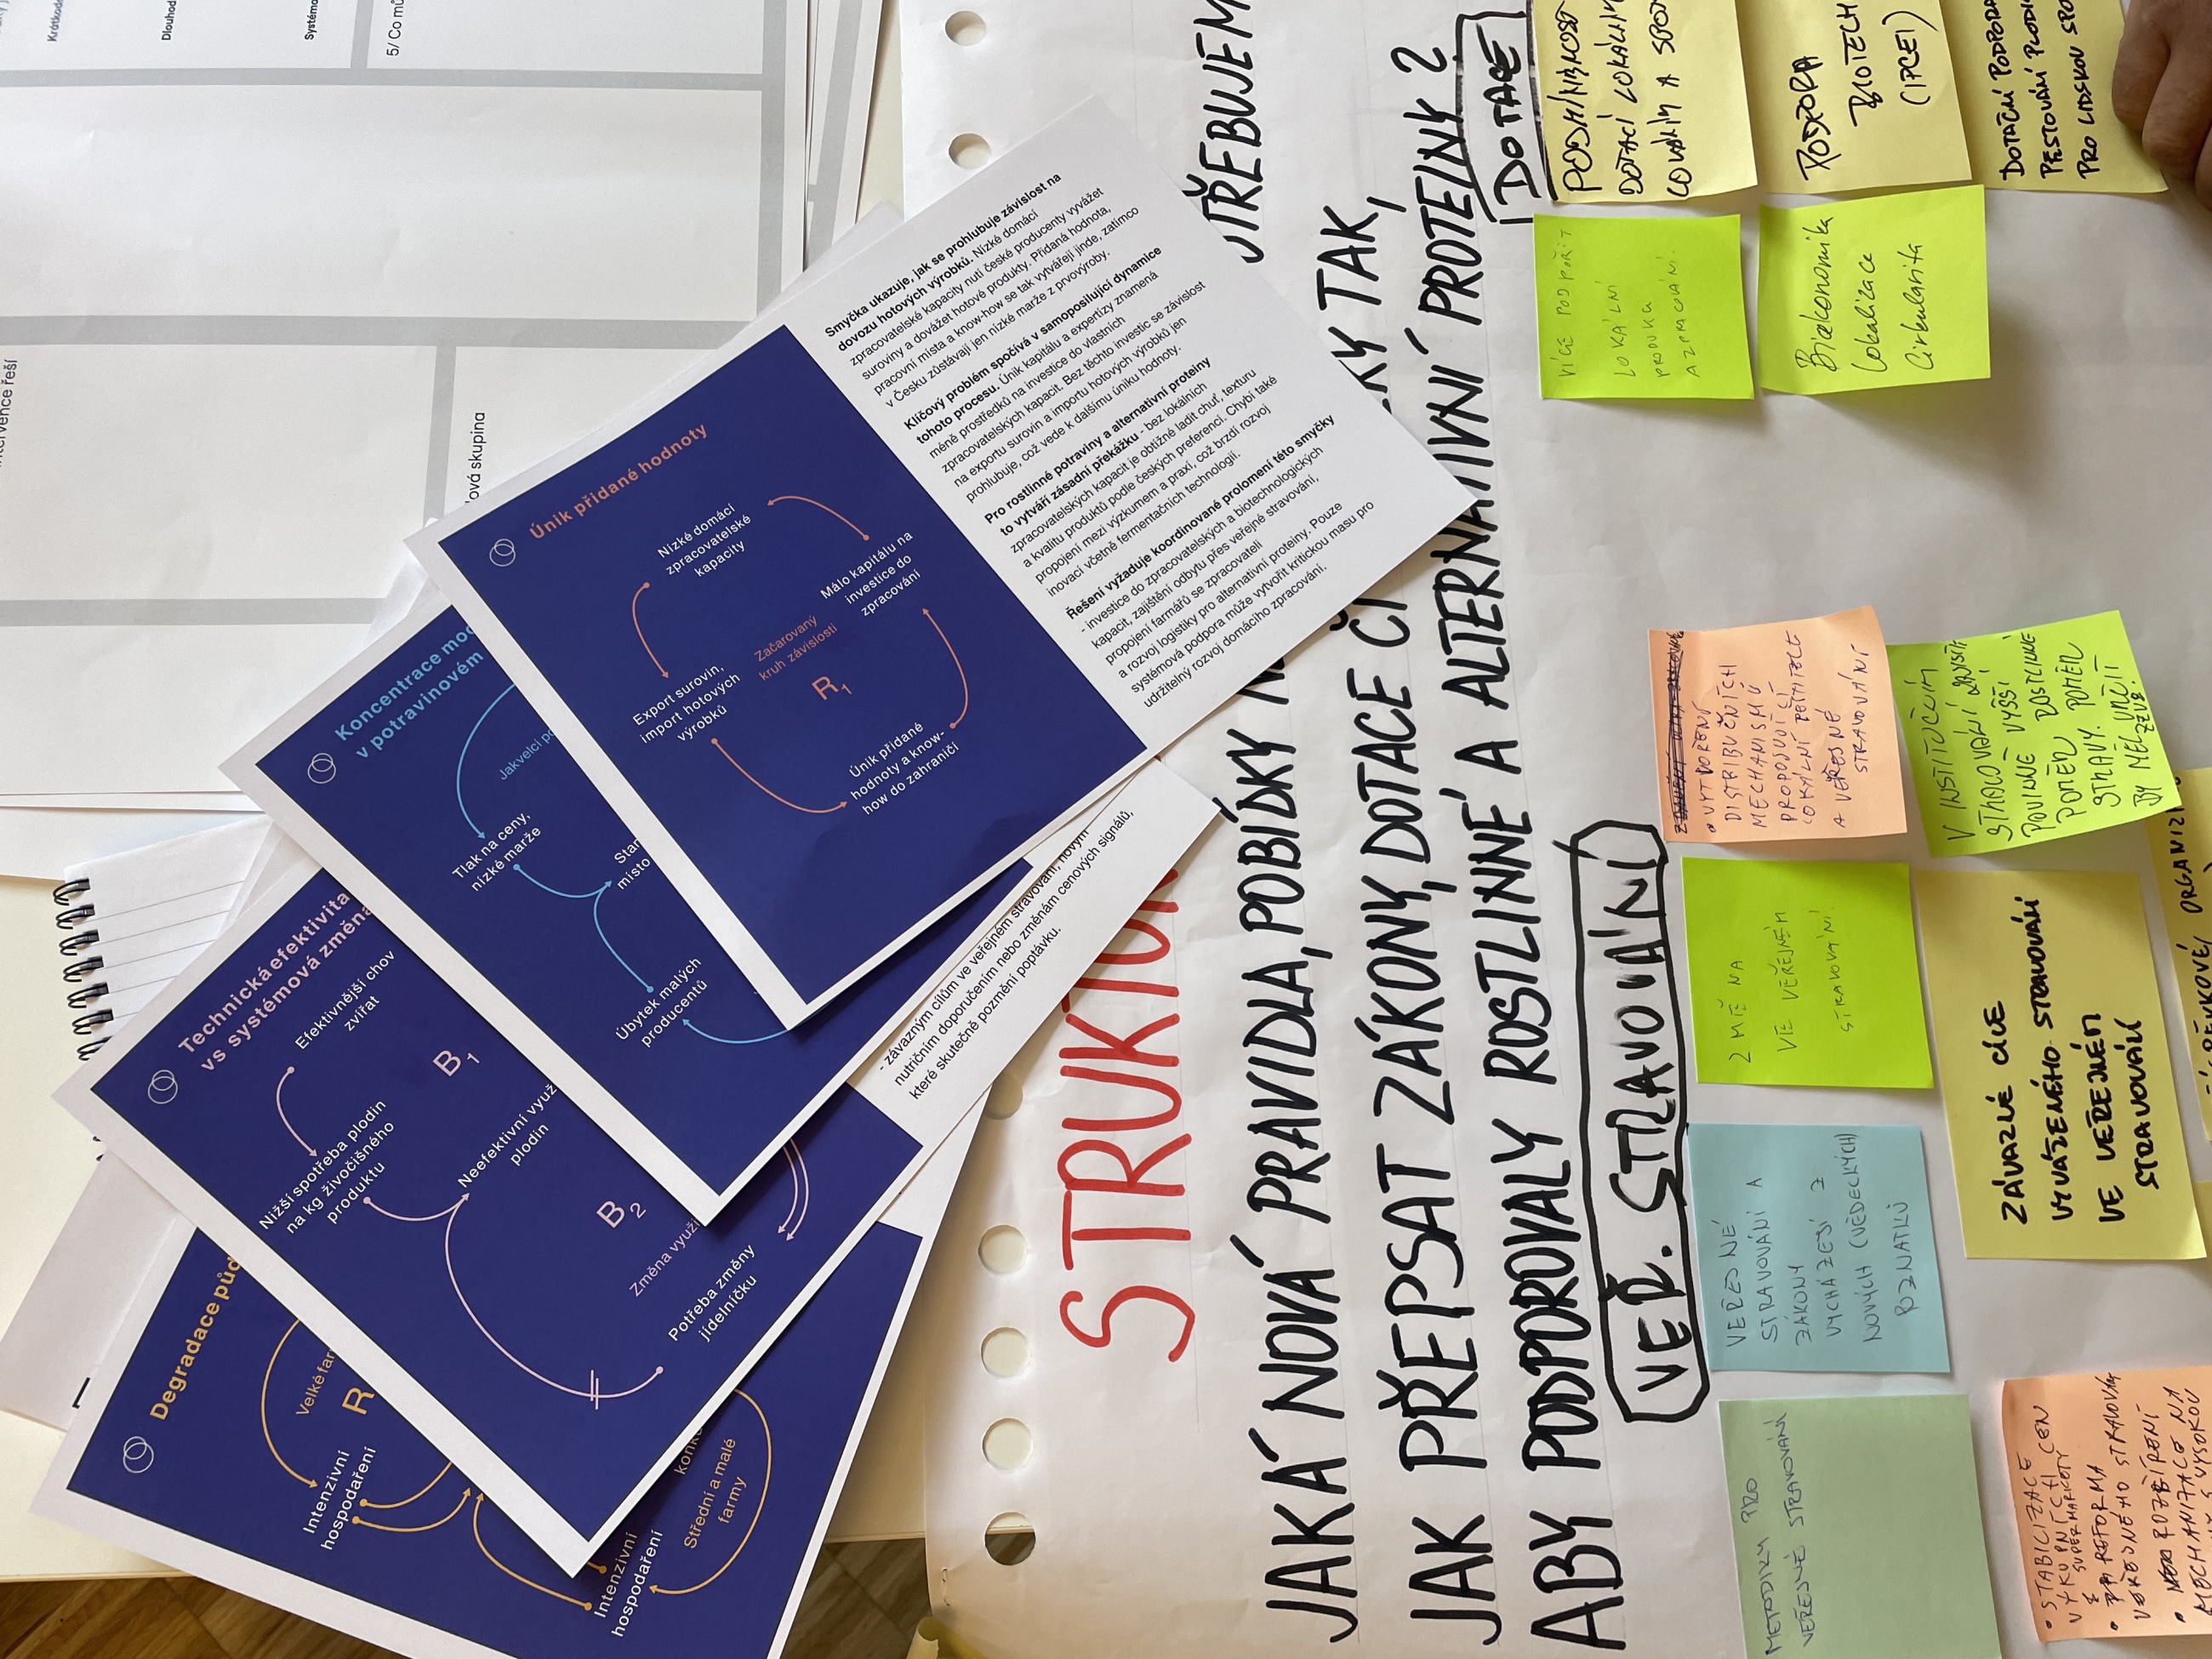 Krátkodo
Dlouhod
Systémo
5/ Co mů
intervence řeší
ová skupina
Únik přidané hodnoty
Nízké domácí
zpracovatelské
kapacity
Málo kapitálu na
investice do
zpracování
Začarovaný
kruh závislosti
R1
Export surovin,
import hotových
výrobků
Únik přidané
hodnoty a know-
how do zahraničí
Smyčka ukazuje, jak se prohlubuje závislost na
dovozu hotových výrobků. Nízké domácí
zpracovatelské kapacity nutí české producenty vyvážet
suroviny a dovážet hotové produkty. Přidaná hodnota,
pracovní místa a know-how se tak vytvářejí jinde, zatímco
v Česku zůstávají jen nízké marže z prvovýroby.
Klíčový problém spočívá v samoposilující dynamice
tohoto procesu. Únik kapitálu a expertízy znamená
méně prostředků na investice do vlastních
zpracovatelských kapacit. Bez těchto investic se závislost
na exportu surovin a importu hotových výrobků jen
prohlubuje, což vede k dalšímu úniku hodnoty.
Pro rostlinné potraviny a alternativní proteiny
to vytváří zásadní překážku - bez lokálních
zpracovatelských kapacit je obtížné ladit chuť, texturu
a kvalitu produktů podle českých preferencí. Chybí také
propojení mezi výzkumem a praxí, což brzdí rozvoj
inovací včetně fermentačních technologií.
Řešení vyžaduje koordinované prolomení této smyčky
- investice do zpracovatelských a biotechnologických
kapacit, zajištění odbytu přes veřejné stravování,
propojení farmářů se zpracovateli
a rozvoj logistiky pro alternativní proteiny. Pouze
systémová podpora může vytvořit kritickou masu pro
udržitelný rozvoj domácího zpracování.
Koncentrace moc
v potravinovém
Jak velcí po
Tlak na ceny,
nízké marže
Star
místo
Úbytek malých
producentů
Technická efektivita
vs systémová změna
Efektivnější chov
zvířat
B1
Nižší spotřeba plodin
na kg živočišného
produktu
Neefektivní využ
plodin
B2
Změna využi
Potřeba změny
jídelníčku
- závazným cílům ve veřejném stravování, novým
nutričním doporučením nebo změnám cenových signálů,
které skutečně pozmění poptávku.
Degradace půd
Velké far
R
Intenzivní
hospodaření
konk
Střední a malé
farmy
Intenzivní
hospodaření
STRUKTU
TŘEBUJEM
JAKÁ NOVÁ PRAVIDLA, POBÍDKY N
KY TAK,
JAK PŘEPSAT ZÁKONY, DOTACE ČI
ABY PODPOROVALY ROSTLINNÉ A ALTERNATIVNÍ PROTEINY ?
DOTACE
VEŘ. STRAVOVÁNÍ
DOTACÍ LOKÁLNÍM
PODPORA
BIOTECH
(IPCEI)
DOTAČNÍ PODPORA
PĚSTOVÁNÍ PLODI
PRO LIDSKOU SPO
VÍCE PODPOŘIT
LOKÁLNÍ
PRODUKCI
A ZPRACOVÁNÍ
Bioekonomika
Lokalizace
Cirkularita
• VYTVOŘENÍ
DISTRIBUČNÍCH
MECHANISMŮ
PROPOJUJÍCÍ
LOKÁLNÍ PRODUKCE
A VEŘEJNÉ
STRAVOVÁNÍ
V INSTITUČNÍM
STRAVOVÁNÍ
POVINNĚ VYŠŠÍ
POMĚR ROSTLINNÉ
STRAVY. POMĚR
BY MĚL URČIT
ZZVR.
ZMĚNA
VE VEŘEJNÉM
STRAVOVÁNÍ
ZÁVAZNÉ CÍLE
VYVÁŽENÉHO STRAVOVÁNÍ
VE VEŘEJNÉM
STRAVOVÁNÍ
ORGANIZ
VEŘEJNÉ
STRAVOVÁNÍ A
ZÁKONY
VYCHÁZEJÍ Z
NOVÝCH (VĚDECKÝCH)
POZNATKŮ
METODIKY PRO
VEŘEJNÉ STRAVOVÁNÍ
• STABILIZACE
VÝKUPNÍCH CEN
Z SUPERMARKETY
REFORMA
VEŘEJNÉHO STRAVOVÁN
ROZŠÍŘENÍ
MECHANIZACE NA
VYSOKOU